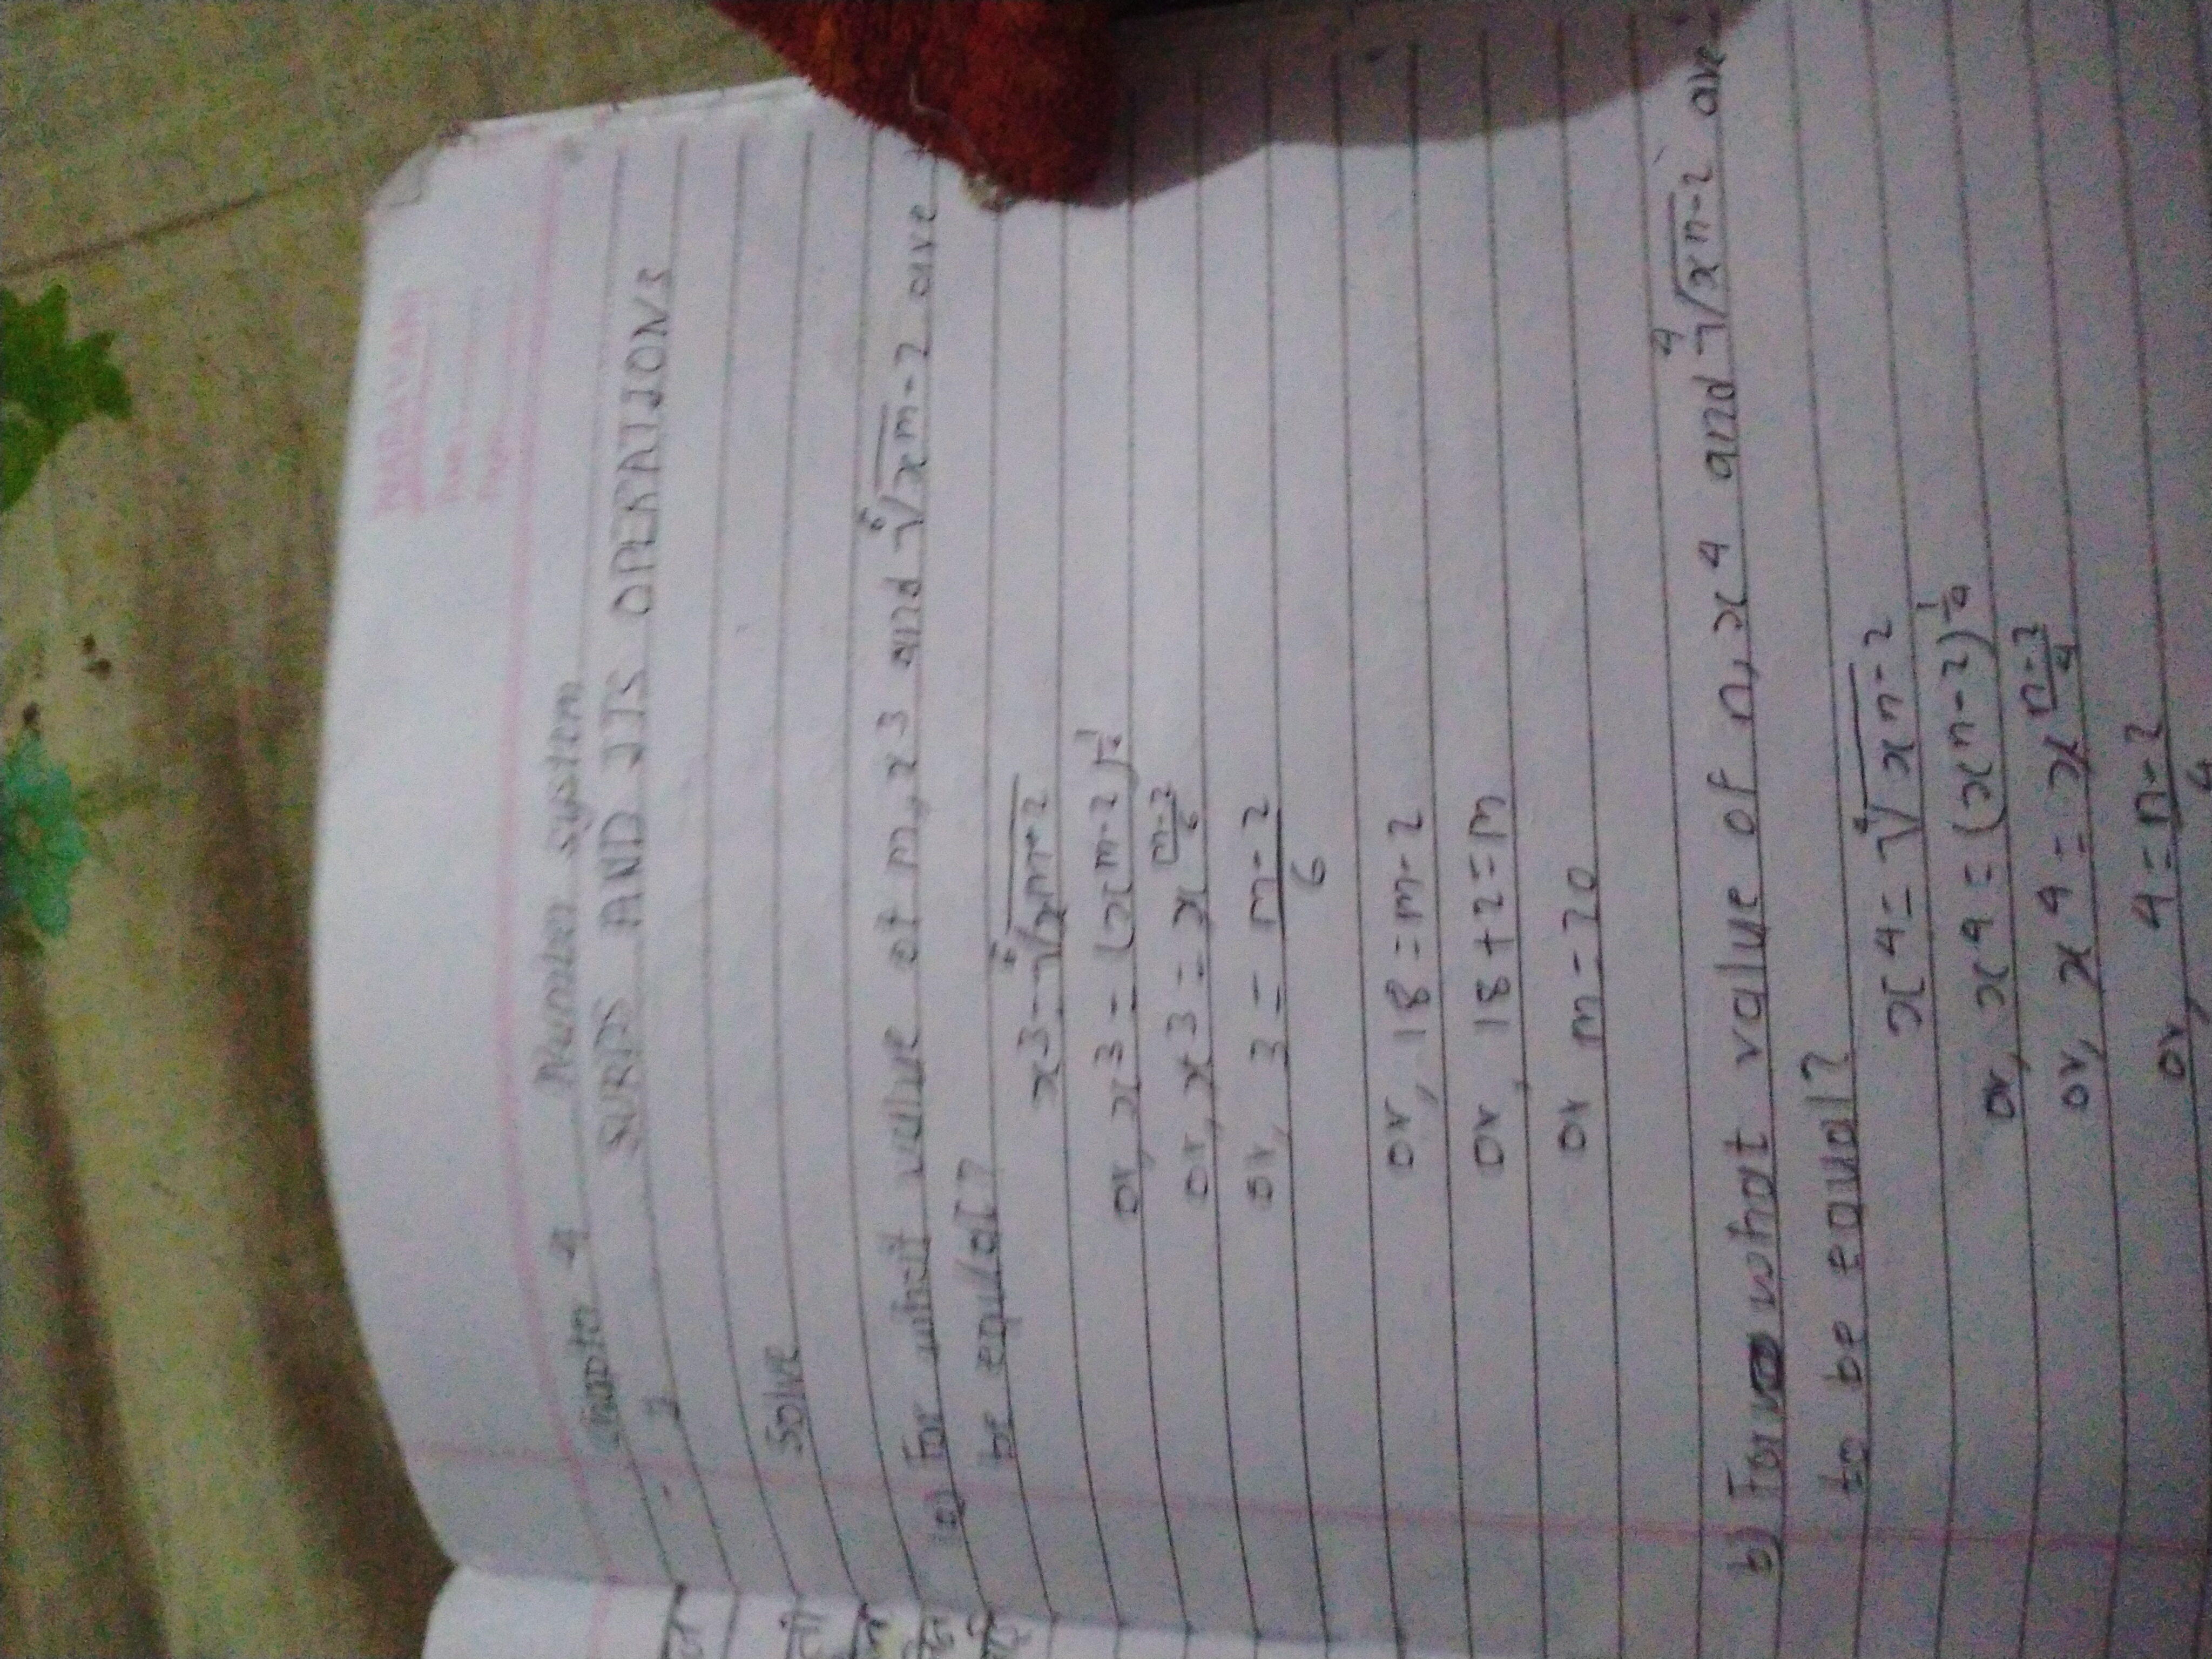 NARAYAN
Date
Page
Chapter 4 Number system
- 2 SURDS AND ITS OPERATIONS
Solve
(a) For what value of m, x3 and 6√xm-2 are
be equal?
x3-6√xm-2
or, x3 = (xm-2)
or, x3 = xm-2/6
or, 3 = m-2/6
or, 18 = m-2
or, 18+2=m
or m=20
b) For what value of n, x4 and 4√xn-2 are
to be equal?
x4 = 4√xn-2
or, x4 = (xn-2)1/4
or, x4 = xn-2/4
or, 4 = n-2/4